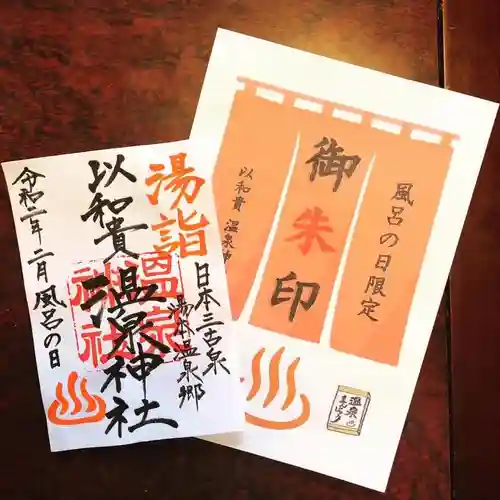 湯詣
日本三古泉
湯本温泉郷
以和貴
温泉神社
温泉神社
令和二年二月風呂の日
風呂の日限定
御朱印
以和貴 温泉神
温泉
まんじゅう